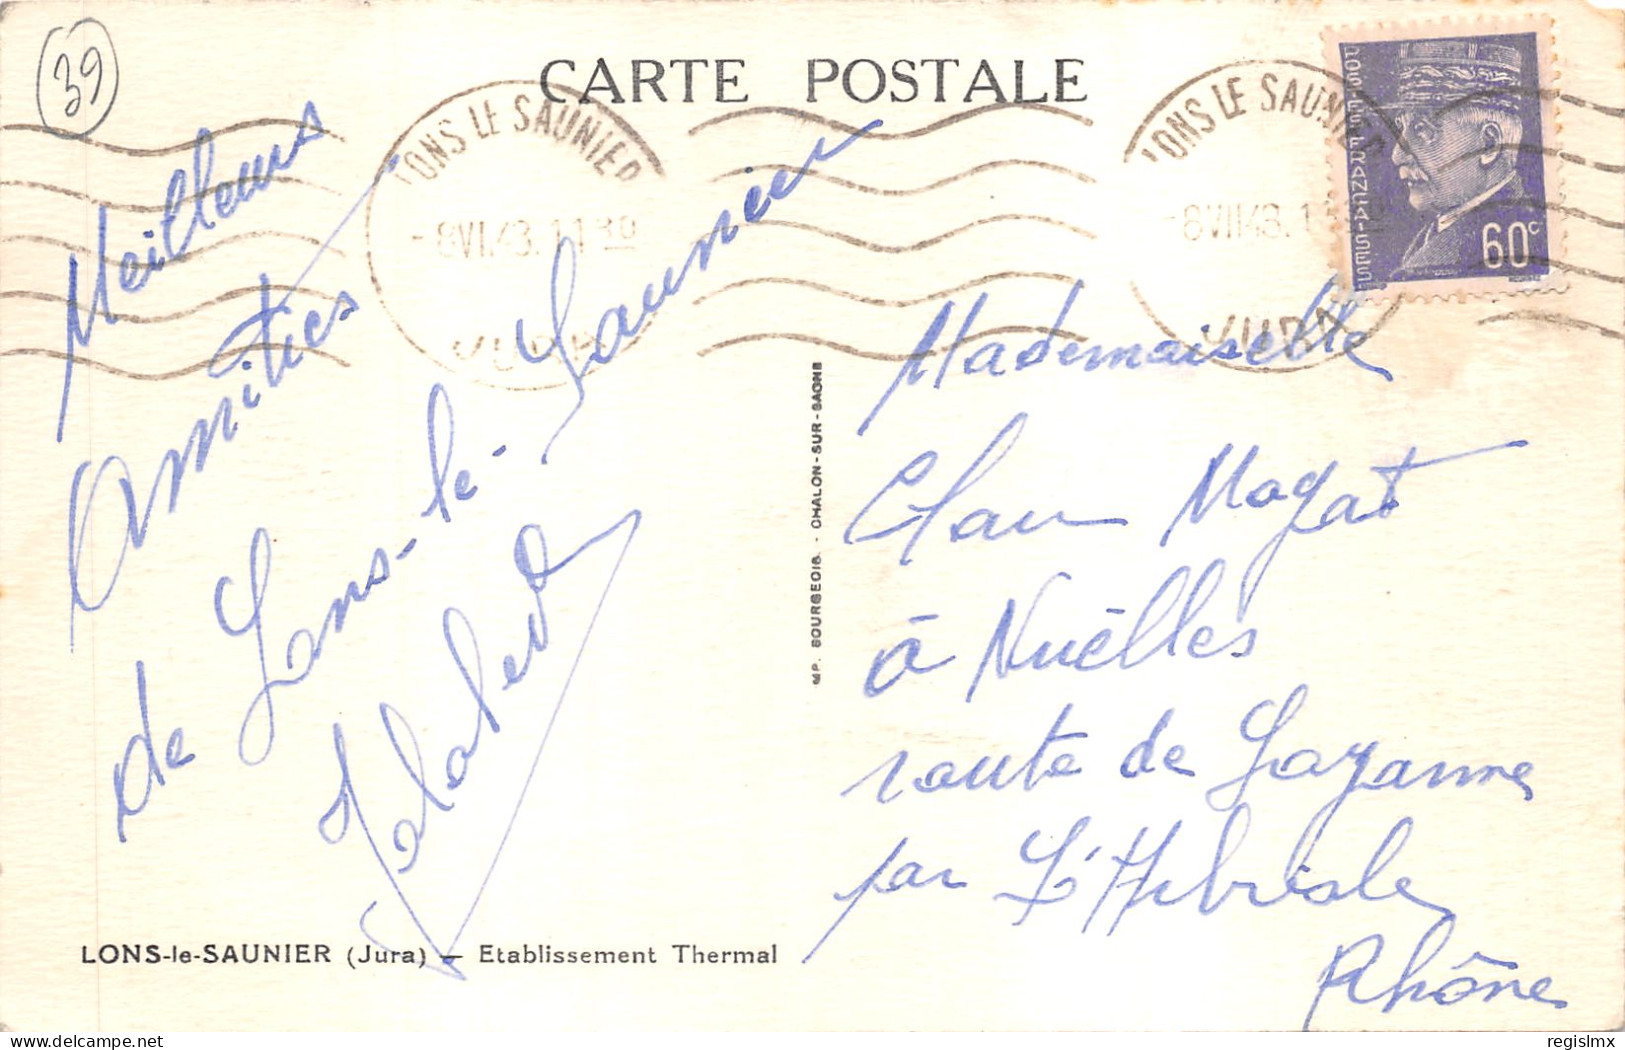 39
CARTE POSTALE
LONS LE SAUNIER
-8 VII.43. 11 30
JURA
LONS LE SAUNIER
-8 VII 43. 1
JURA
POSTES FRANÇAISES
60c
Meilleurs
Amitiés
de Lons-le-Saunier
Mademoiselle
à Nuelles
route de
par L'Arbresle
Rhône
IMP. BOURGEOIS. - CHALON-SUR-SAONE
LONS-le-SAUNIER (Jura) — Etablissement Thermal
regislmx